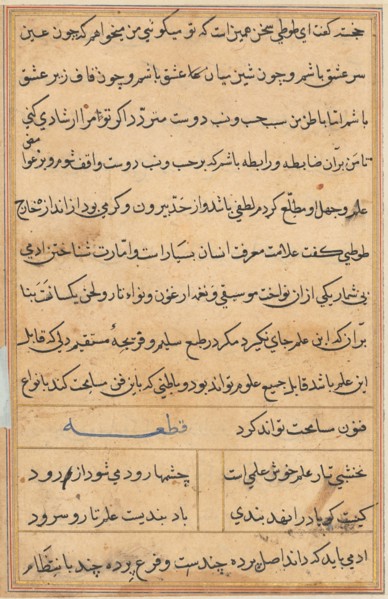 خجسته گفت ای طوطی سخن همین است که تو میگوئی من میخواهم که چون عین
سر عشق باشم و چون شین میان عشق باشم و چون قاف زیر عشق
باشم اما باطن من سبب حب دوست متردد اگر تو مرا ارشادی کنی
تا من بر آن ضابطه و رابطه باشم که بر حب دوست واقف شوم و بر
علم و جهل او مطلع کردم لطفی باشد از حد بیرون و کرمی بود از اندازه خارج
طوطی گفت علامت معرفت انسان بسیار است و امارت شناختن ادمی
بی شمار یکی از ان نواخت موسیقی و نغمه ارغون و نواء تار و لحن یکسانست بنا
بر آن که این علم جای نگیرد مگر در طبع سلیم و قریحهٔ مستقیم دلی که قابل
این علم باشد قابل جمیع علوم تواند بود و باطنی که باین فن سامحت کند بانواع
فنون سامحت تواند کرد قطعه
نخشبی تار علم خوش علمی است چشمها رود می شود از رود
کیست کو باد را نهد بندی باد بندیست علم تار و سرود
ادمی باید که داند اصل پرده چندست و فرع پرده چند با نتظام